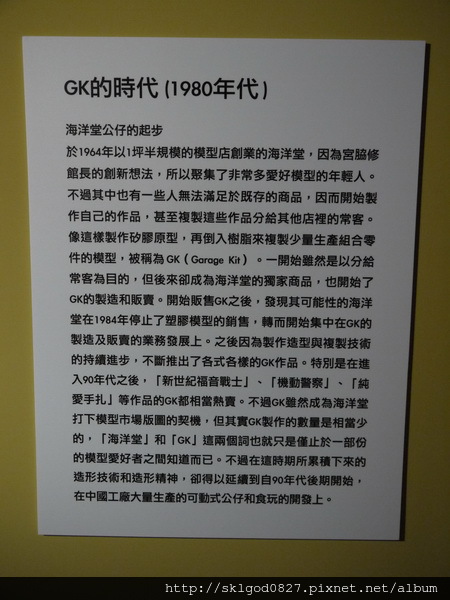 GK的時代 (1980年代)
海洋堂公仔的起步
於1964年以1坪半規模的模型店創業的海洋堂，因為宮脇修
館長的創新想法，所以聚集了非常多愛好模型的年輕人。
不過其中也有一些人無法滿足於既存的商品，因而開始製
作自己的作品，甚至複製這些作品分給其他店裡的常客。
像這樣製作矽膠原型，再倒入樹脂來複製少量生產組合零
件的模型，被稱為GK（Garage Kit）。一開始雖然是以分給
常客為目的，但後來卻成為海洋堂的獨家商品，也開始了
GK的製造和販賣。開始販售GK之後，發現其可能性的海洋
堂在1984年停止了塑膠模型的銷售，轉而開始集中在GK的
製造及販賣的業務發展上。之後因為製作造型與複製技術
的持續進步，不斷推出了各式各樣的GK作品。特別是在進
入90年代之後，「新世紀福音戰士」、「機動警察」、「純
愛手扎」等作品的GK都相當熱賣。不過GK雖然成為海洋堂
打下模型市場版圖的契機，但其實GK製作的數量是相當少
的，「海洋堂」和「GK」這兩個詞也就只是僅止於一部份
的模型愛好者之間知道而已。不過在這時期所累積下來的
造形技術和造形精神，卻得以延續到自90年代後期開始，
在中國工廠大量生產的可動式公仔和食玩的開發上。
http://sklgod0827.pixnet.net/album